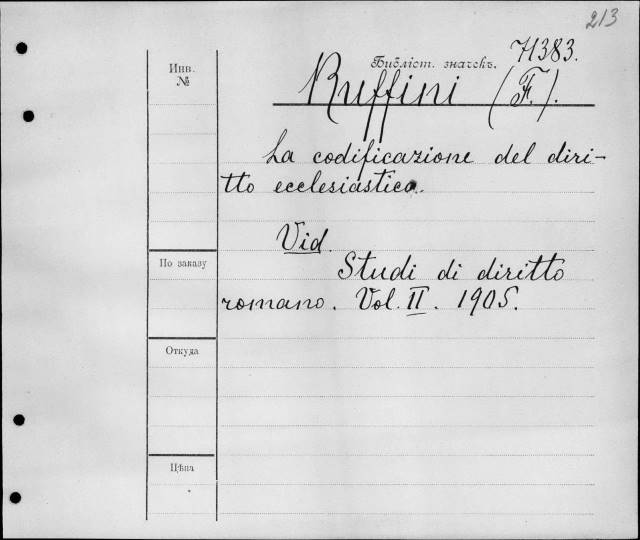 213
71383.
Инв.
№
Библіот. значекъ.
Ruffini (F.).
La codificazione del diri-
tto ecclesiastico.
Vid.
Studi di diritto
romano. Vol. II. 1905.
По заказу
Откуда
Цѣна